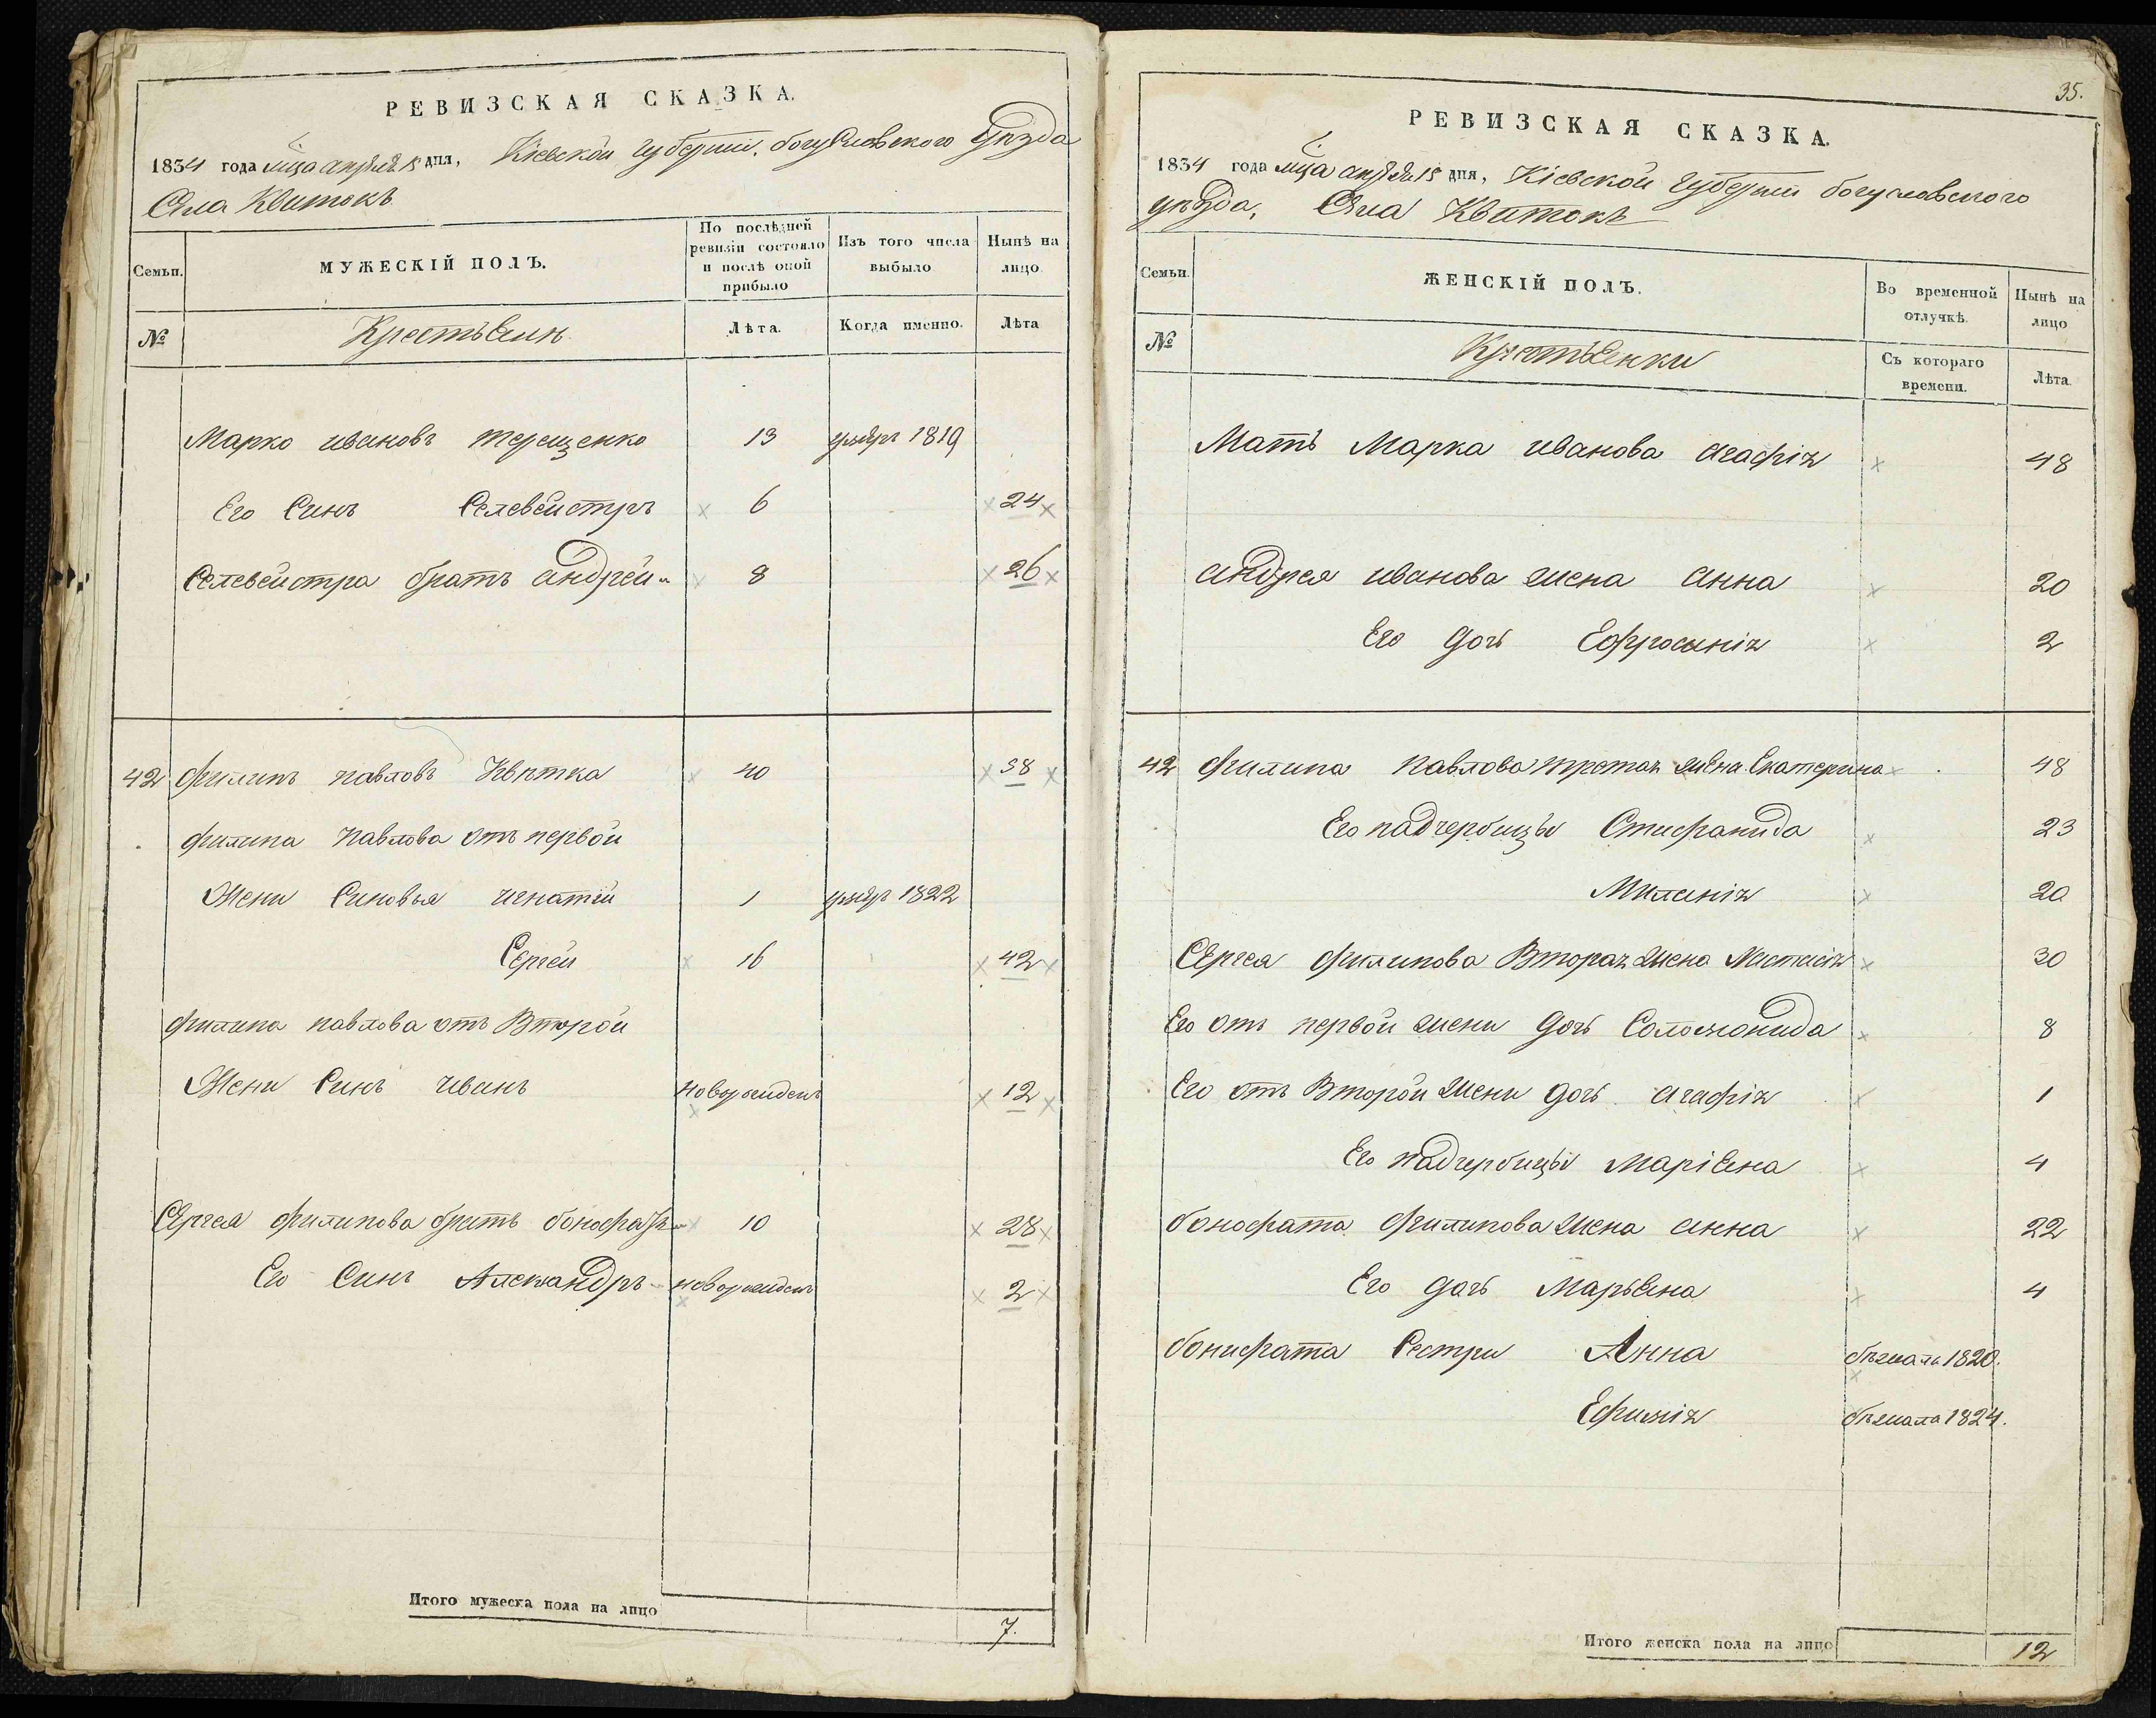 РЕВИЗСКАЯ СКАЗКА.
1834 года мца апреля 15 дня, Кіевской губерніи, богуславского уѣзда
Села Квитокъ
Семьи.
МУЖЕСКІЙ ПОЛЪ.
По послѣдней ревизіи состояло и послѣ оной прибыло
Изъ того числа выбыло
Нынѣ на лицо
№
Крестьяне
Лѣта.
Когда именно.
Лѣта
Марко ивановъ терещенко 13 умеръ 1819
Его Синъ Селевейстръ 6 24
Селевейстра братъ андрей 8 26
42 филипъ павловъ Квѣтка 40 58
филипа павлова отъ первой
Жени Синовья игнатій 1 умеръ 1822
Сергей 16 42
филипа павлова отъ Второй
Жени Синъ иванъ новорожденъ 12
Сергея филипова братъ бонофатъ 10 28
Его Синъ Александръ новорожденъ 2
Итого мужеска пола на лицо 7.
35.
РЕВИЗСКАЯ СКАЗКА.
1834 года мца апреля 15 дня, Кіевской губерніи богуславского
уѣзда, Села Квитокъ
Семьи.
ЖЕНСКІЙ ПОЛЪ.
Во временной отлучкѣ.
Нынѣ на лицо
№
Крестьянки
Съ котораго времени.
Лѣта.
Мать Марка иванова агафія 48
андрея иванова жена анна 20
Его дочь Ефросинія 2
42 филипа павлова третая жена Екатерина 48
Его падчербицы Стифанида 23
Миланія 20
Сергея филипова Вторая жена Настасія 30
Его отъ первой жени дочь Соломонида 8
Его отъ Второй жени дочь агафія 1
Его падчербицы Маріяна 4
бонофата филипова жена анна 22
Его дачь Марьяна 4
бонифата Сестри Анна бѣжала 1820.
Ефимія бѣжала 1824.
Итого женска пола на лицо 12